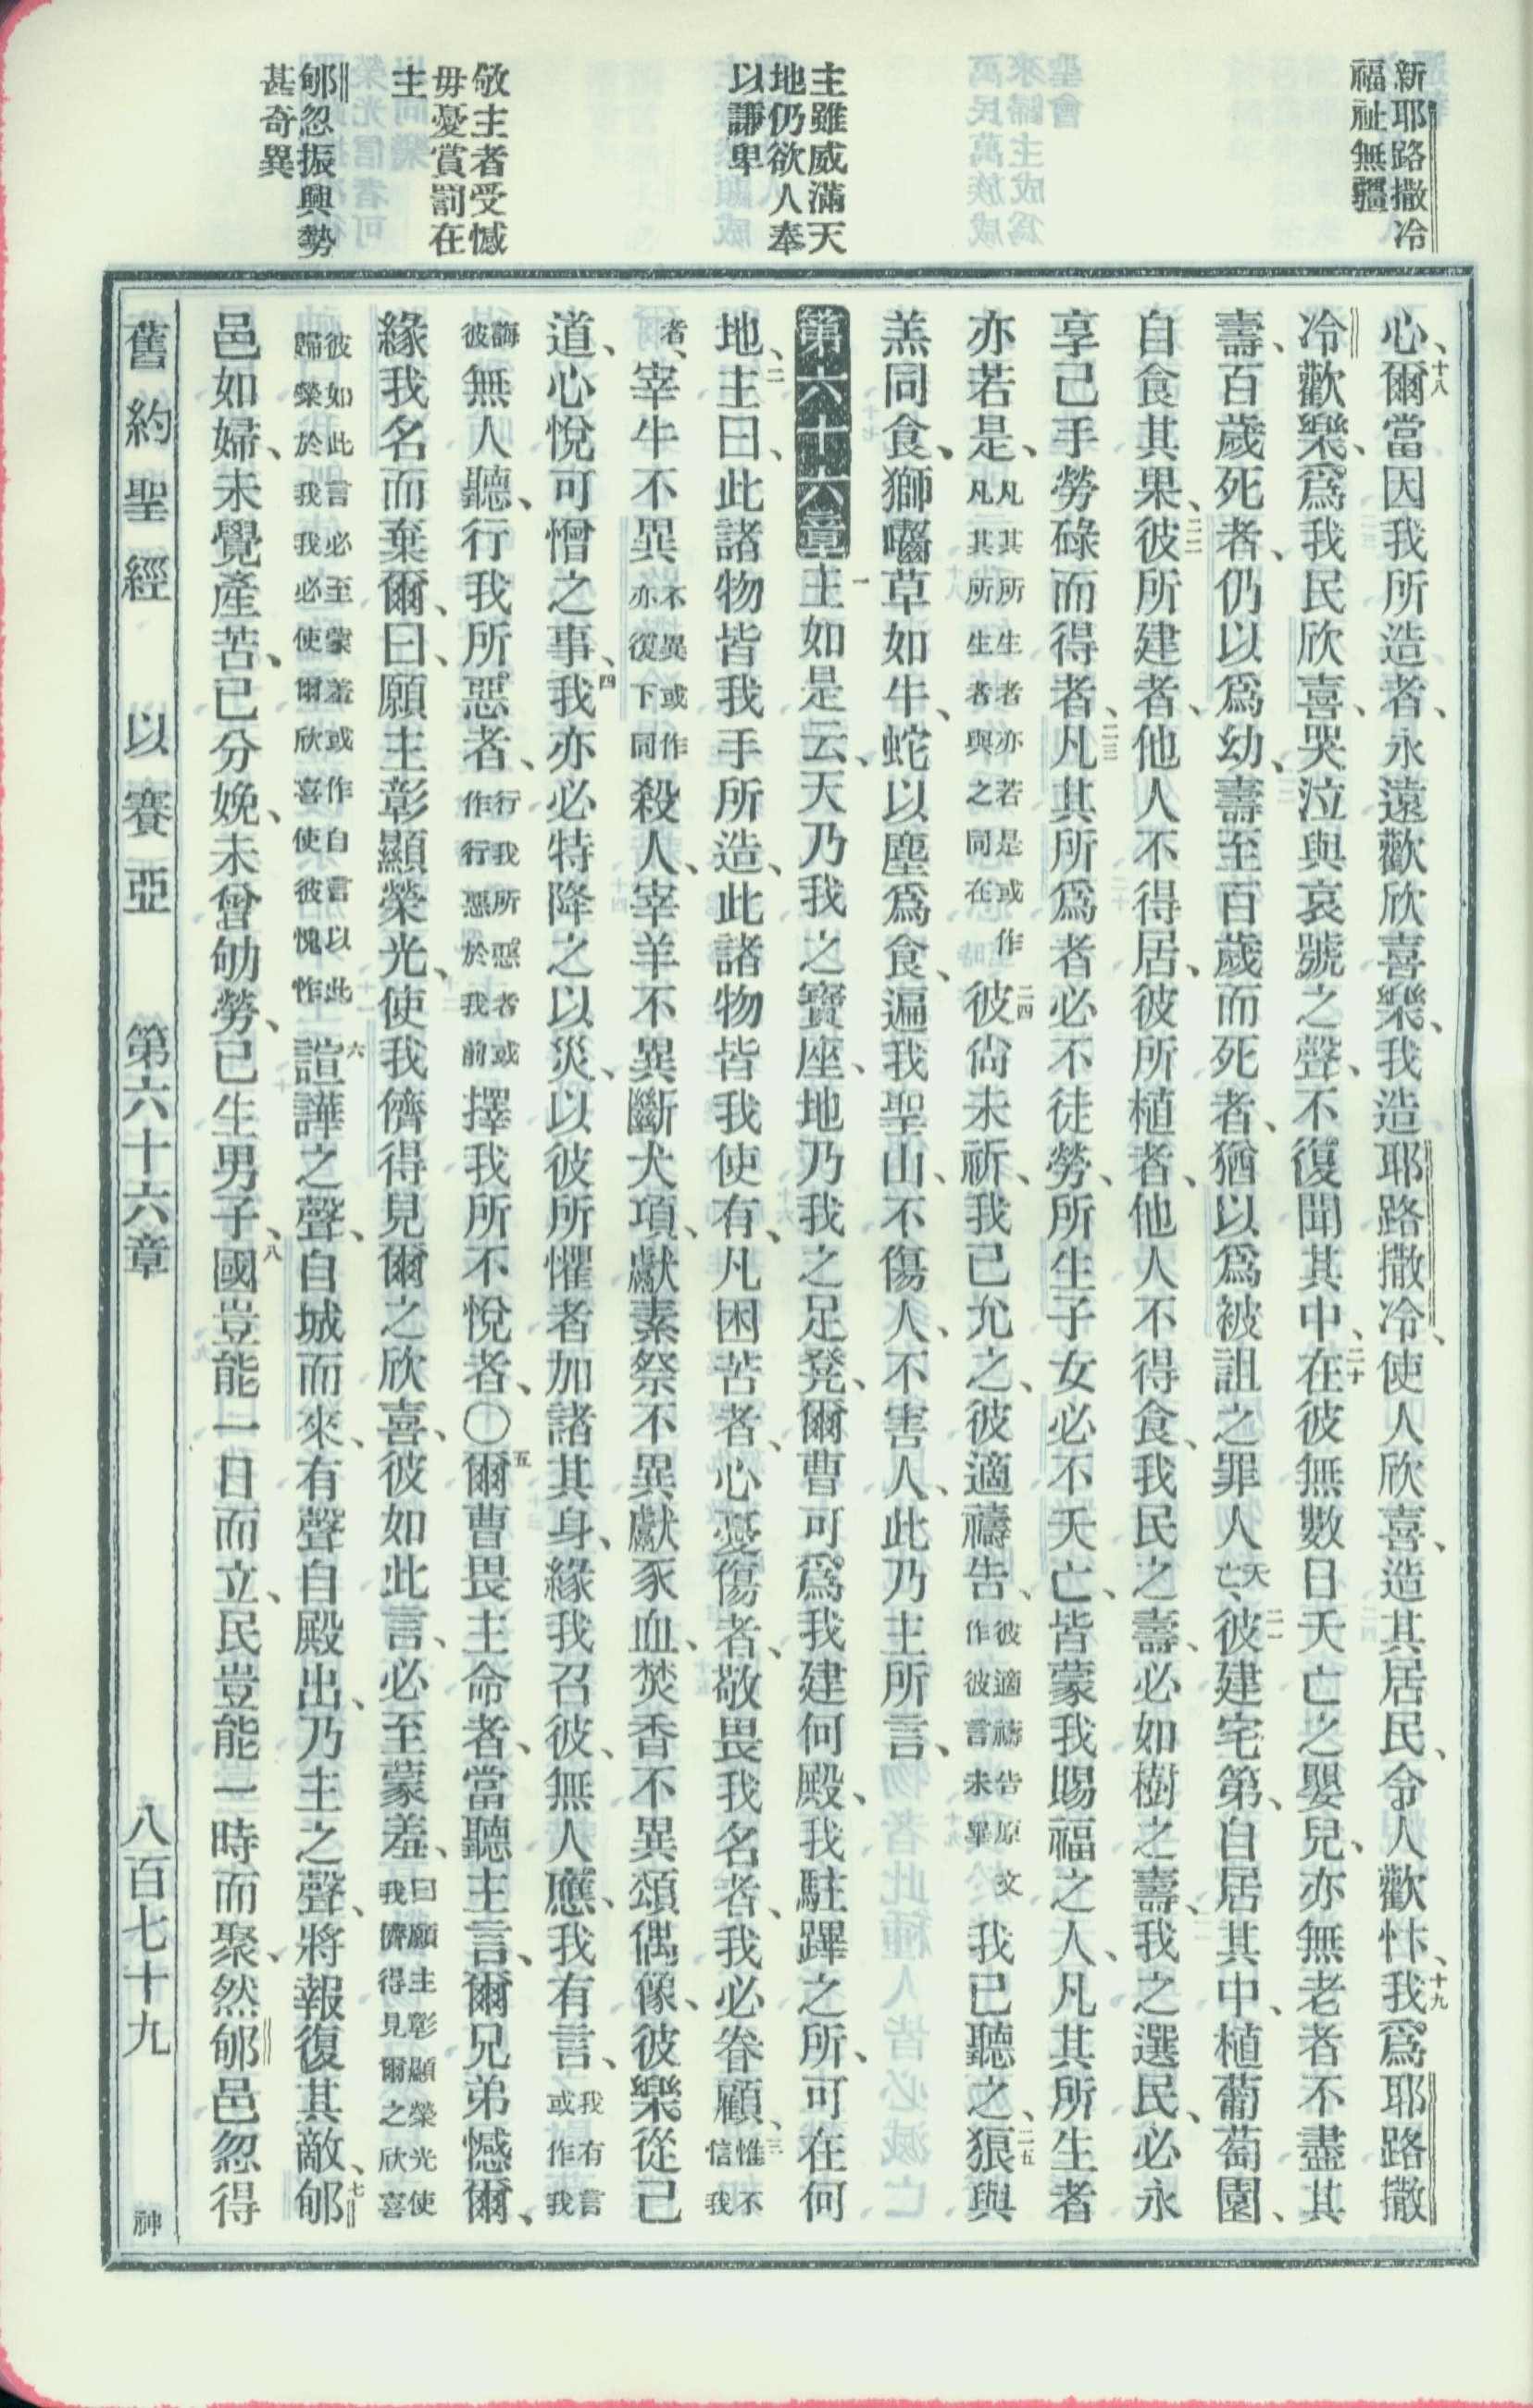 新耶路撒冷
福祉無疆
主雖威滿天
地仍欲人奉
以謙卑
敬主者受憾
毋憂賞罰在
主
郇忽振興勢
甚奇異
心、十八爾當因我所造者、永遠歡欣喜樂、我造耶路撒冷、使人欣喜、造其居民、令人歡忭、十九我爲耶路撒
冷歡樂、爲我民欣喜、哭泣與哀號之聲、不復聞其中、二十在彼無數日夭亡之嬰兒、亦無老者不盡其
壽、百歲死者、仍以爲幼、壽至百歲而死者、猶以爲被詛之罪人夭亡、二一彼建宅第、自居其中、植葡萄園、
自食其果、二二彼所建者、他人不得居、彼所植者、他人不得食、我民之壽、必如樹之壽、我之選民、必永
享己手勞碌而得者、二三凡其所爲者必不徒勞、所生子女必不夭亡、皆蒙我賜福之人、凡其所生者
亦若是、凡其所生者亦若是或作凡其所生者與之同在二四彼尙未祈、我已允之、彼適禱告、彼適禱告原文作彼言未畢我已聽之、二五狼與
羔同食、獅嚙草如牛、蛇以塵爲食、遍我聖山、不傷人、不害人、此乃主所言、
第六十六章一主如是云、天乃我之寶座、地乃我之足凳、爾曹可爲我建何殿、我駐蹕之所、可在何
地、二主曰、此諸物皆我手所造、此諸物皆我使有、凡困苦者、心憂傷者、敬畏我名者、我必眷顧、三惟不信我
者、宰牛不異不異或作亦復下同殺人、宰羊不異斷犬項、獻素祭不異獻豕血、焚香不異頌偶像、彼樂從己
道、心悅可憎之事、四我亦必特降之以災、以彼所懼者加諸其身、緣我召彼、無人應、我有言、我有言或作我
誨彼無人聽、行我所惡者、行我所惡者或作行惡於我前擇我所不悅者、〇五爾曹畏主命者、當聽主言、爾兄弟憾爾、
緣我名而棄爾、曰、願主彰顯榮光、使我儕得見爾之欣喜、彼如此言、必至蒙羞、曰願主彰顯榮光使我儕得見爾之欣喜
彼如此言必至蒙羞或作自言以此歸榮於我我必使爾欣喜使彼愧怍六諠譁之聲、自城而來、有聲自殿出、乃主之聲、將報復其敵、七郇
邑如婦、未覺產苦、已分娩、未曾劬勞、已生男子、八國豈能一日而立、民豈能一時而聚、然郇邑忽得
舊約聖經 以賽亞 第六十六章 八百七十九 神